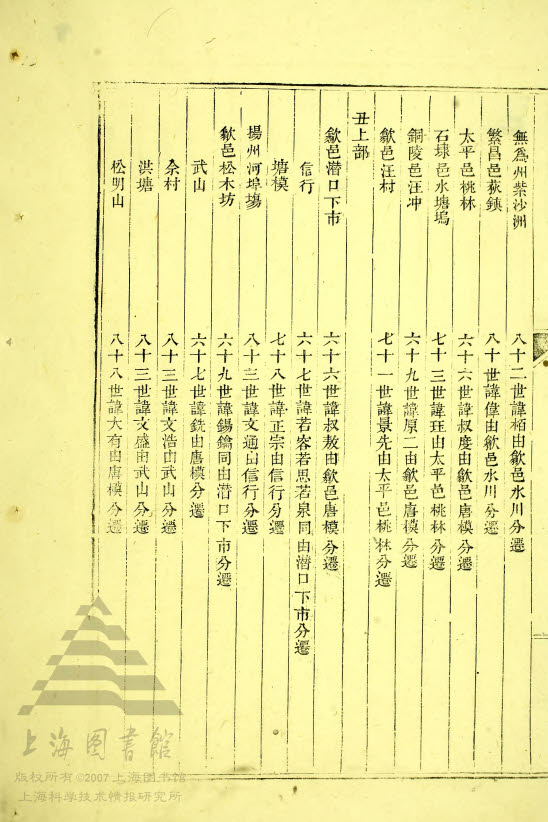 無爲州紫沙洲 八十二世諱栢由歙邑水川分遷
繁昌邑荻鎮 八十世諱偉由歙邑水川分遷
太平邑桃林 六十六世諱叔度由歙邑唐模分遷
石埭邑水塘塢 七十三世諱玨由太平邑桃林分遷
銅陵邑汪冲 六十九世諱原二由歙邑唐模分遷
歙邑汪村 七十一世諱景先由太平邑桃林分遷
丑上部
歙邑潜口下市 六十六世諱叔敖由歙邑唐模分遷
信行 六十七世諱若容若思若泉同由潜口下市分遷
塘模 七十八世諱正宗由信行分遷
揚州河埠塲 八十三世諱文通由信行分遷
歙邑松木坊 六十九世諱鍚鐈同由潜口下市分遷
武山 六十七世諱銑由唐模分遷
佘村 八十三世諱文浩由武山分遷
洪塘 八十三世諱文盛由武山分遷
松明山 八十八世諱大有由唐模分遷
上海图書館
版权所有©2007上海图书馆
上海科学技术情报研究所